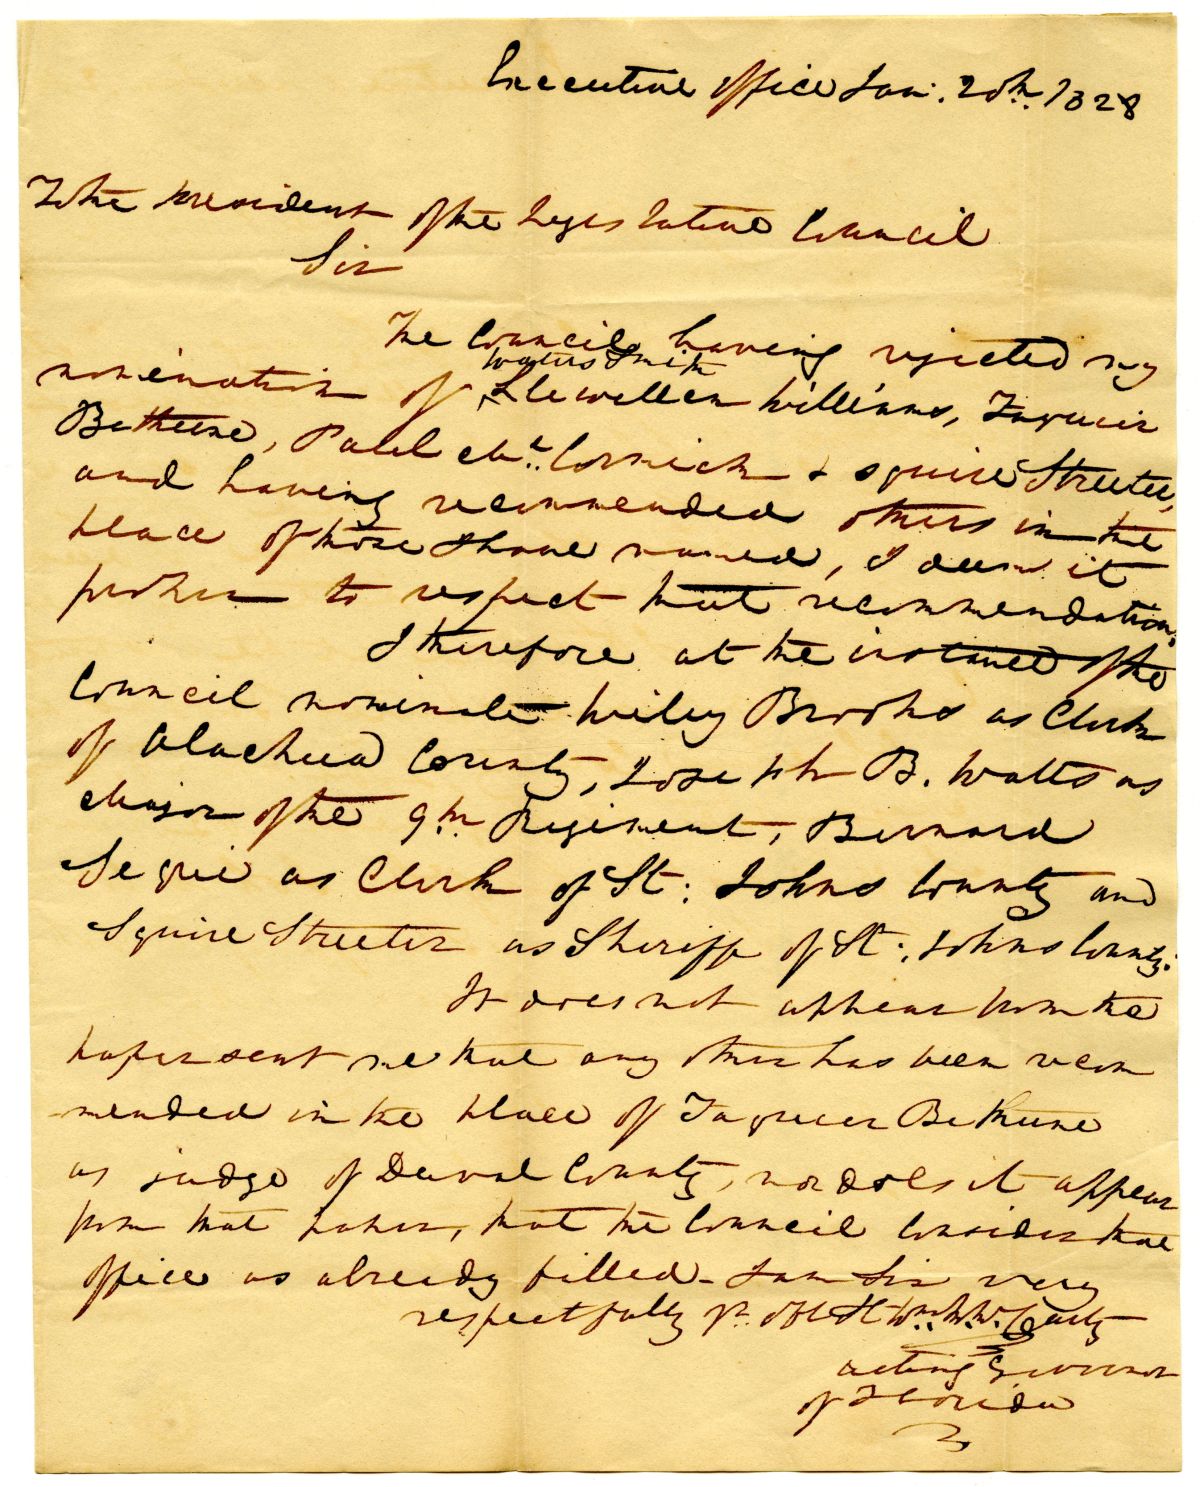 Executive office Jan: 20th. 1828
To the President of the Legislative Council
Sir
The Council having rejected my
Waters Smith
nomination of ^ Llewellen Williams, Farquier
Bethune, Patk Mc. Cormick & Squire Streeter,
and having recommended others in the
place of those above named, I deem it
proper to respect that recommendation.
I therefore at the instance of the
Council nominate Wiley Brooks as Clerk
of Alachua County, Joseph B. Watts as
Major of the 9th Regiment, Bernard
Segui as Clerk of St: Johns County and
Squire Streeter as Sheriff of St: Johns County.
It does not appear from the
paper sent me that any other has been recom
-mended in the place of Farquier Bethune
as judge of Duval County, nor does it appear
from that paper, that the Council consider that
office as already filled. I am Sir very
respectfully yr. Obt St Wm. M. Mc. Carty
acting Governor
of Florida